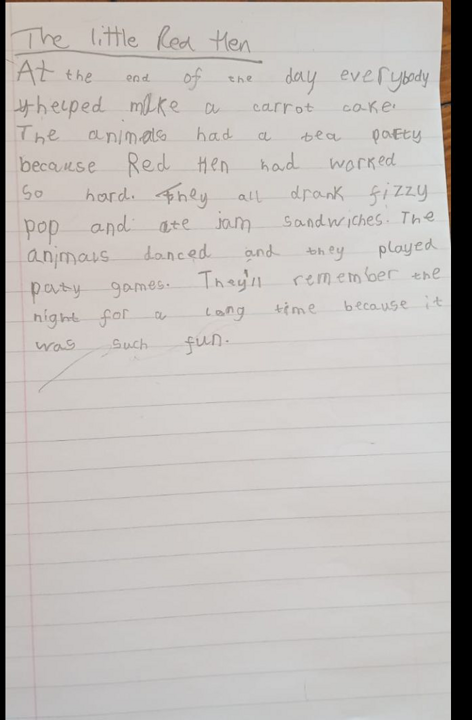 The little Red Hen
At the end of the day everybody
helped make a carrot cake.
The animals had a tea party
because Red Hen had worked
so hard. They all drank fizzy
pop and ate jam sandwiches. The
animals danced and they played
paty games. They'll remember the
night for a long time because it
was such fun.